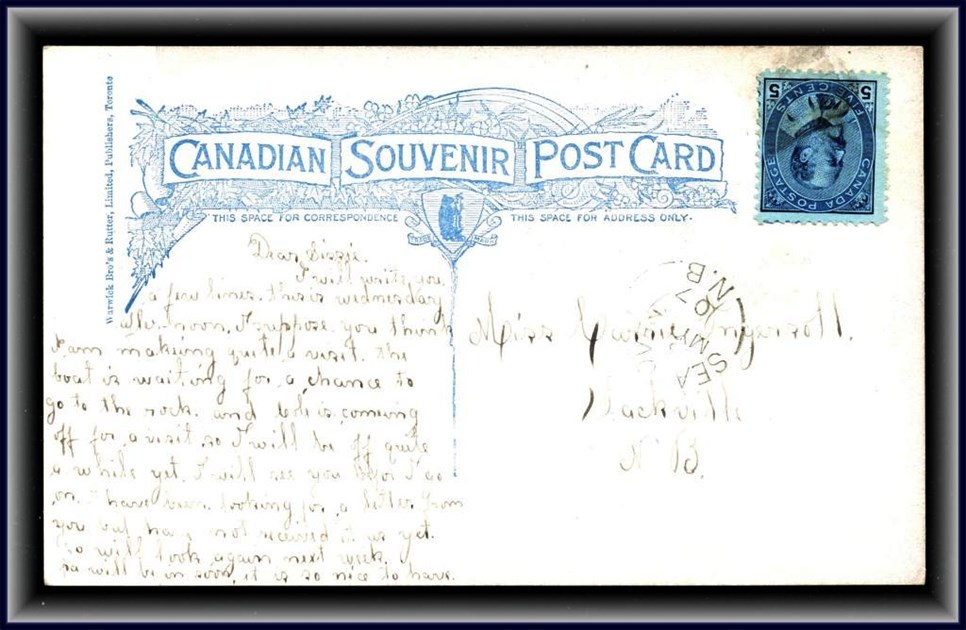 Warwick Bro's & Rutter, Limited, Publishers, Toronto
CANADIAN SOUVENIR POST CARD
THIS SPACE FOR CORRESPONDENCE
THIS SPACE FOR ADDRESS ONLY.
TRADE MARK
CANADA POSTAGE
FIVE CENTS
5 5
SEA
07
N.B.
Dear Lizzie.
I will write you
a few lines. this is wednesday
noon, I suppose you think
I am making quite a visit. the
boat is waiting for a chance to
go to the rock. and is coming
off for a visit, so I will be off quite
a while yet. I will see you befor I go
on. I have been looking for a letter from
you but have not received it as yet.
so will look again next week.
pa will be in soon, it is so nice to have.
Miss Carrie Ingersoll.
N B.